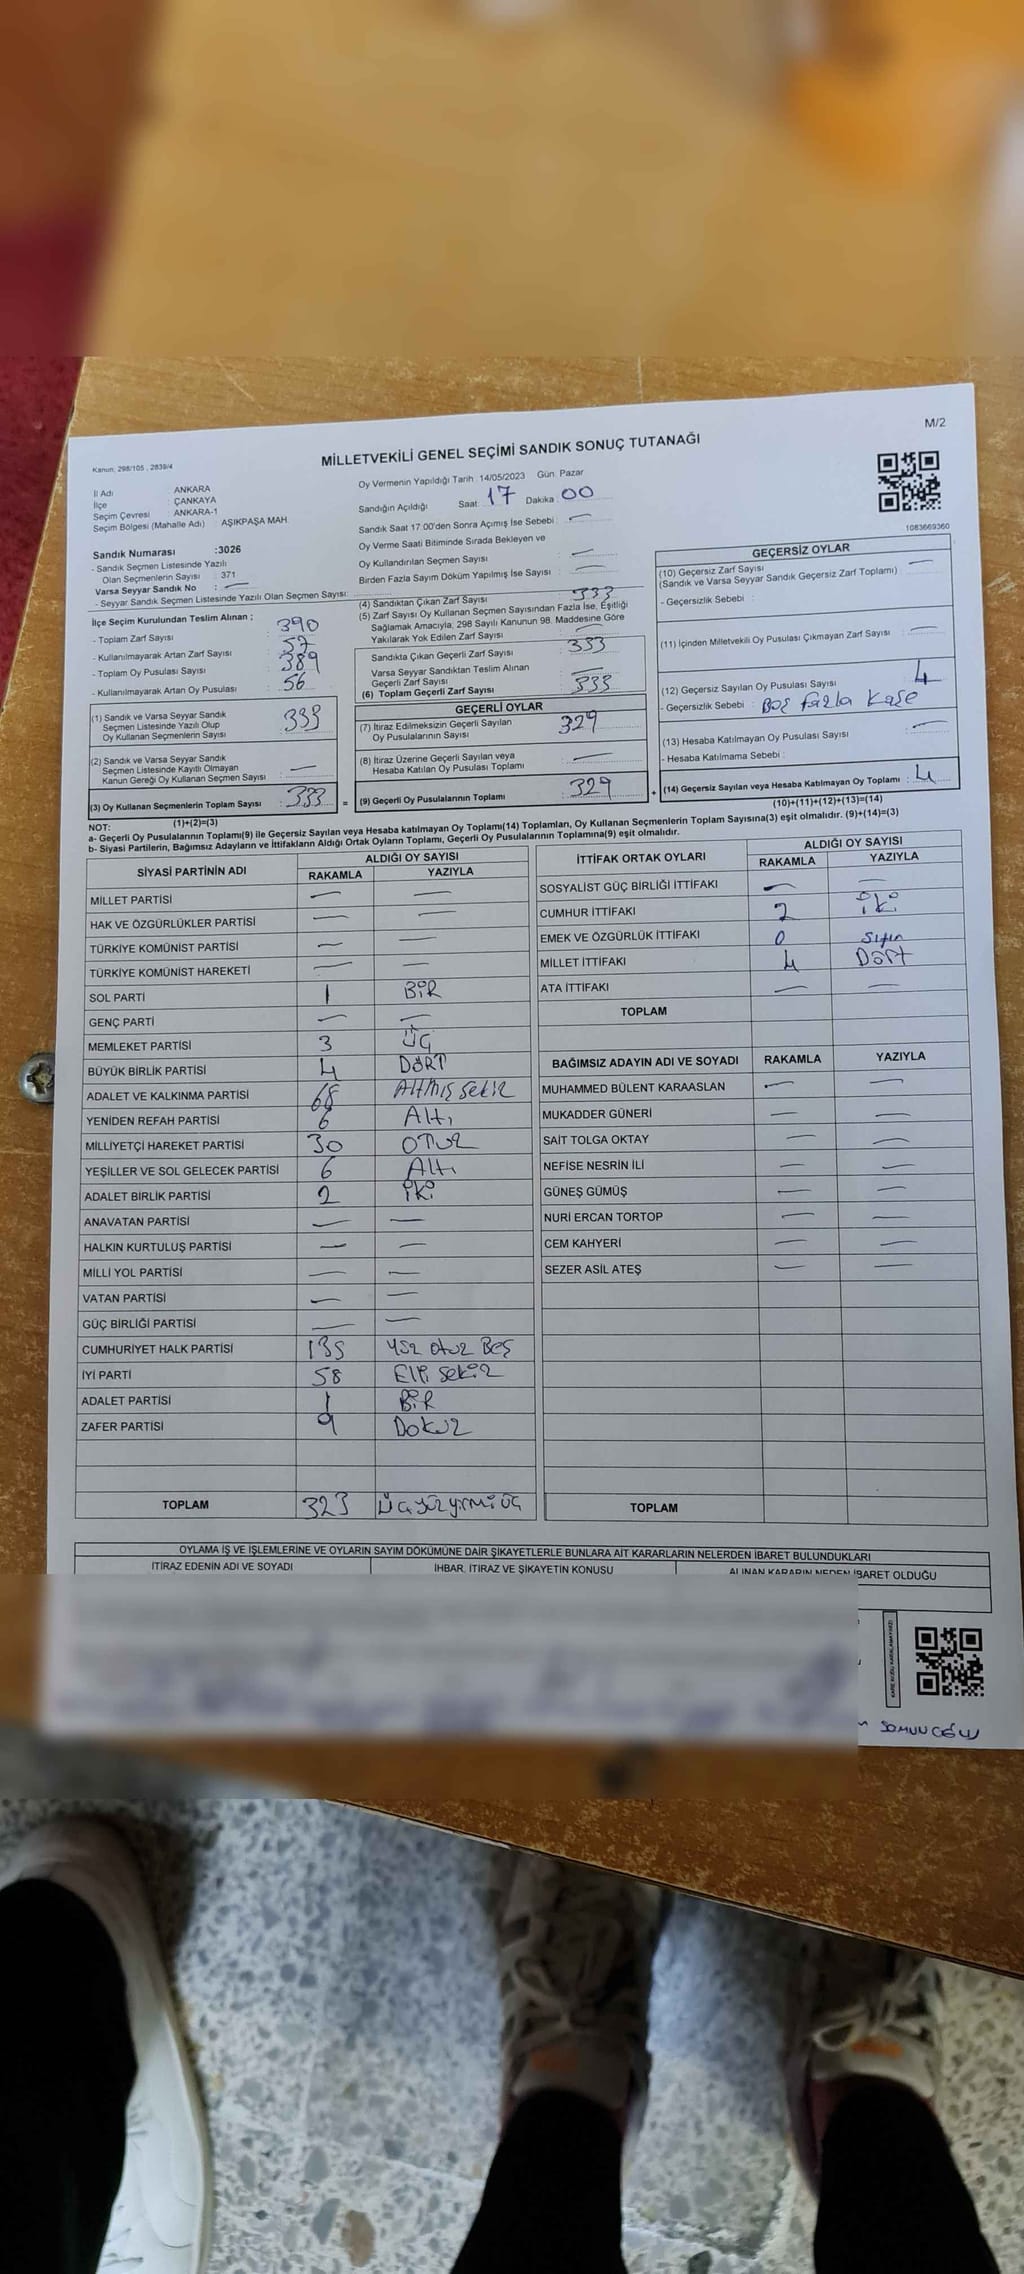 M/2
Kanun: 298/105 , 2839/4
MİLLETVEKİLİ GENEL SEÇİMİ SANDIK SONUÇ TUTANAĞI
İl Adı : ANKARA
İlçe : ÇANKAYA
Seçim Çevresi : ANKARA-1
Seçim Bölgesi (Mahalle Adı) : AŞIKPAŞA MAH
Sandık Numarası :3026
- Sandık Seçmen Listesinde Yazılı
Olan Seçmenlerin Sayısı : 371
Varsa Seyyar Sandık No : —
- Seyyar Sandık Seçmen Listesinde Yazılı Olan Seçmen Sayısı:
Oy Vermenin Yapıldığı Tarih :14/05/2023 Gün: Pazar
Sandığın Açıldığı Saat: 17 Dakika: 00
Sandık Saat 17:00'den Sonra Açımış İse Sebebi : —
Oy Verme Saati Bitiminde Sırada Bekleyen ve
Oy Kullandırılan Seçmen Sayısı : —
Birden Fazla Sayım Döküm Yapılmış İse Sayısı : —
1083669360
İlçe Seçim Kurulundan Teslim Alınan ;
- Toplam Zarf Sayısı : 390
- Kullanılmayarak Artan Zarf Sayısı : 57
- Toplam Oy Pusulası Sayısı : 389
- Kullanılmayarak Artan Oy Pusulası : 56
(1) Sandık ve Varsa Seyyar Sandık
Seçmen Listesinde Yazılı Olup
Oy Kullanan Seçmenlerin Sayısı : 333
(2) Sandık ve Varsa Seyyar Sandık
Seçmen Listesinde Kayıtlı Olmayan
Kanun Gereği Oy Kullanan Seçmen Sayısı : —
(3) Oy Kullanan Seçmenlerin Toplam Sayısı : 333
(1)+(2)=(3)
(4) Sandıktan Çıkan Zarf Sayısı : 333
(5) Zarf Sayısı Oy Kullanan Seçmen Sayısından Fazla İse, Eşitliği
Sağlamak Amacıyla, 298 Sayılı Kanunun 98. Maddesine Göre
Yakılarak Yok Edilen Zarf Sayısı : —
Sandıkta Çıkan Geçerli Zarf Sayısı : 333
Varsa Seyyar Sandıktan Teslim Alınan
Geçerli Zarf Sayısı : —
(6) Toplam Geçerli Zarf Sayısı : 333
GEÇERLİ OYLAR
(7) İtiraz Edilmeksizin Geçerli Sayılan
Oy Pusulalarının Sayısı : 329
(8) İtiraz Üzerine Geçerli Sayılan veya
Hesaba Katılan Oy Pusulası Toplamı : —
= (9) Geçerli Oy Pusulalarının Toplamı : 329 +
GEÇERSİZ OYLAR
(10) Geçersiz Zarf Sayısı : —
(Sandık ve Varsa Seyyar Sandık Geçersiz Zarf Toplamı)
- Geçersizlik Sebebi :
(11) İçinden Milletvekili Oy Pusulası Çıkmayan Zarf Sayısı : —
(12) Geçersiz Sayılan Oy Pusulası Sayısı : 4
- Geçersizlik Sebebi : Boş fazla Kaşe
(13) Hesaba Katılmayan Oy Pusulası Sayısı : —
- Hesaba Katılmama Sebebi :
(14) Geçersiz Sayılan veya Hesaba Katılmayan Oy Toplamı : 4
(10)+(11)+(12)+(13)=(14)
NOT:
a- Geçerli Oy Pusulalarının Toplamı(9) ile Geçersiz Sayılan veya Hesaba katılmayan Oy Toplamı(14) Toplamları, Oy Kullanan Seçmenlerin Toplam Sayısına(3) eşit olmalıdır. (9)+(14)=(3)
b- Siyasi Partilerin, Bağımsız Adayların ve İttifakların Aldığı Ortak Oyların Toplamı, Geçerli Oy Pusulalarının Toplamına(9) eşit olmalıdır.
SİYASİ PARTİNİN ADI ALDIĞI OY SAYISI
RAKAMLA YAZIYLA
MİLLET PARTİSİ — —
HAK VE ÖZGÜRLÜKLER PARTİSİ — —
TÜRKİYE KOMÜNİST PARTİSİ — —
TÜRKİYE KOMÜNİST HAREKETİ — —
SOL PARTİ 1 BİR
GENÇ PARTİ — —
MEMLEKET PARTİSİ 3 ÜÇ
BÜYÜK BİRLİK PARTİSİ 4 DÖRT
ADALET VE KALKINMA PARTİSİ 68 Altmış sekiz
YENİDEN REFAH PARTİSİ 6 Altı
MİLLİYETÇİ HAREKET PARTİSİ 30 OTUZ
YEŞİLLER VE SOL GELECEK PARTİSİ 6 Altı
ADALET BİRLİK PARTİSİ 2 İKİ
ANAVATAN PARTİSİ — —
HALKIN KURTULUŞ PARTİSİ — —
MİLLİ YOL PARTİSİ — —
VATAN PARTİSİ — —
GÜÇ BİRLİĞİ PARTİSİ — —
CUMHURİYET HALK PARTİSİ 135 Yüz otuz Beş
İYİ PARTİ 58 Elli sekiz
ADALET PARTİSİ 1 BİR
ZAFER PARTİSİ 9 Dokuz
TOPLAM 323 Üçyüzyirmi üç
İTTİFAK ORTAK OYLARI ALDIĞI OY SAYISI
RAKAMLA YAZIYLA
SOSYALİST GÜÇ BİRLİĞİ İTTİFAKI — —
CUMHUR İTTİFAKI 2 İki
EMEK VE ÖZGÜRLÜK İTTİFAKI 0 Sıfır
MİLLET İTTİFAKI 4 Dört
ATA İTTİFAKI — —
TOPLAM
BAĞIMSIZ ADAYIN ADI VE SOYADI RAKAMLA YAZIYLA
MUHAMMED BÜLENT KARAASLAN — —
MUKADDER GÜNERİ — —
SAİT TOLGA OKTAY — —
NEFİSE NESRİN İLİ — —
GÜNEŞ GÜMÜŞ — —
NURİ ERCAN TORTOP — —
CEM KAHYERİ — —
SEZER ASİL ATEŞ — —
TOPLAM
OYLAMA İŞ VE İŞLEMLERİNE VE OYLARIN SAYIM DÖKÜMÜNE DAİR ŞİKAYETLERLE BUNLARA AİT KARARLARIN NELERDEN İBARET BULUNDUKLARI
İTİRAZ EDENİN ADI VE SOYADI İHBAR, İTİRAZ VE ŞİKAYETİN KONUSU ALINAN KARARIN NEDEN İBARET OLDUĞU
SOMUNCOĞLU